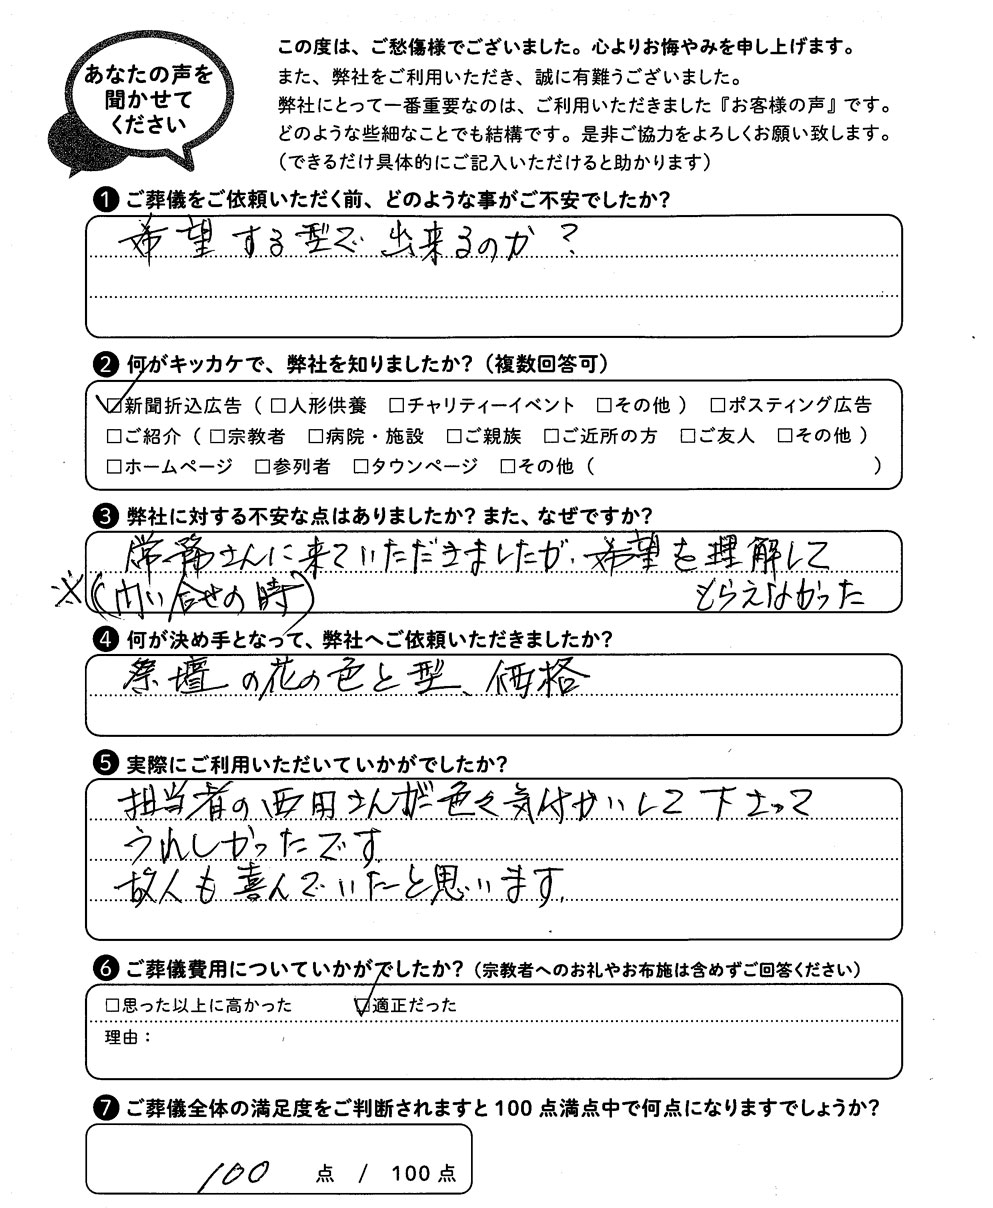 あなたの声を
聞かせて
ください
この度は、ご愁傷様でございました。心よりお悔やみを申し上げます。
また、弊社をご利用いただき、誠に有難うございました。
弊社にとって一番重要なのは、ご利用いただきました『お客様の声』です。
どのような些細なことでも結構です。是非ご協力をよろしくお願い致します。
（できるだけ具体的にご記入いただけると助かります）
❶ ご葬儀をご依頼いただく前、どのような事がご不安でしたか？
希望する型で出来るのか？
❷ 何がキッカケで、弊社を知りましたか？（複数回答可）
☑新聞折込広告（□人形供養 □チャリティーイベント □その他） □ポスティング広告
□ご紹介（□宗教者 □病院・施設 □ご親族 □ご近所の方 □ご友人 □その他）
□ホームページ □参列者 □タウンページ □その他（ ）
❸ 弊社に対する不安な点はありましたか？また、なぜですか？
常務さんに来ていただきましたが、希望を理解して
もらえなかった
※（内い合せの時）
❹ 何が決め手となって、弊社へご依頼いただきましたか？
祭壇の花の色と型、価格
❺ 実際にご利用いただいていかがでしたか？
担当者の西田さんが色々気付かいして下さって
うれしかったです
故人も喜んでいたと思います。
❻ ご葬儀費用についていかがでしたか？（宗教者へのお礼やお布施は含めずご回答ください）
□思った以上に高かった ☑適正だった
理由：
❼ ご葬儀全体の満足度をご判断されますと100点満点中で何点になりますでしょうか？
100 点 / 100点